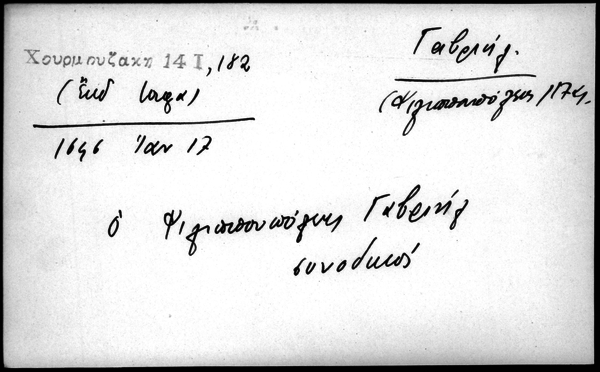 Χουρμουζάκη 14 I, 182
(ἔκδ Ιορga)
1646 Ἰαν 17
Γαβριήλ.
(Φιλιππουπόλεως
ὁ Φιλιππουπόλεως Γαβριήλ
συνοδικό